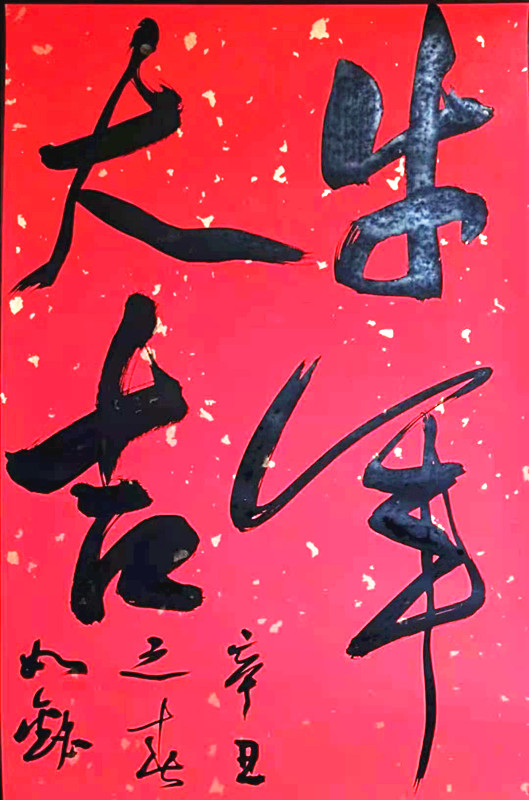 牛年
大吉
辛丑
之春
如